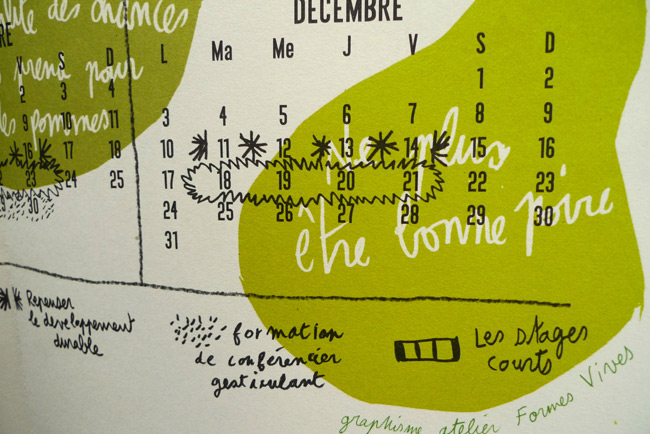 des chances
pour
pommes
RE
S D
2 3 4
9 10 11
16 17 18
23 24 25
30
DÉCEMBRE
L Ma Me J V S D
1 2
3 4 5 6 7 8 9
10 11 12 13 14 15 16
17 18 19 20 21 22 23
24 25 26 27 28 29 30
31
Ne plus
être bonne poire
Repenser
le développement
durable
formation
de conférencier
gesticulant
Les stages
courts
graphisme atelier Formes Vives